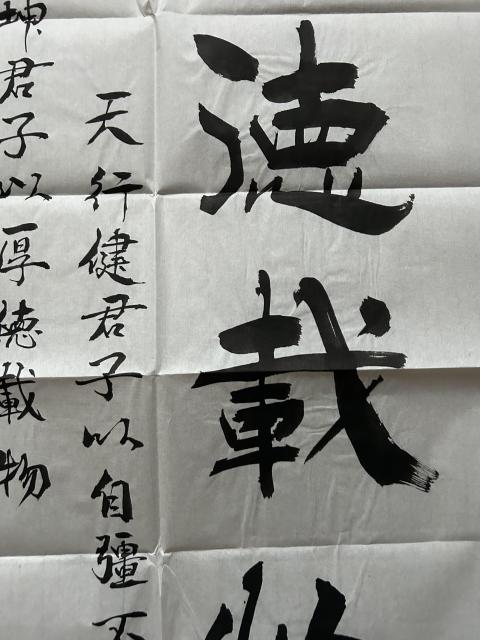 德載
天行健君子以自疆不
坤君子以厚德載物